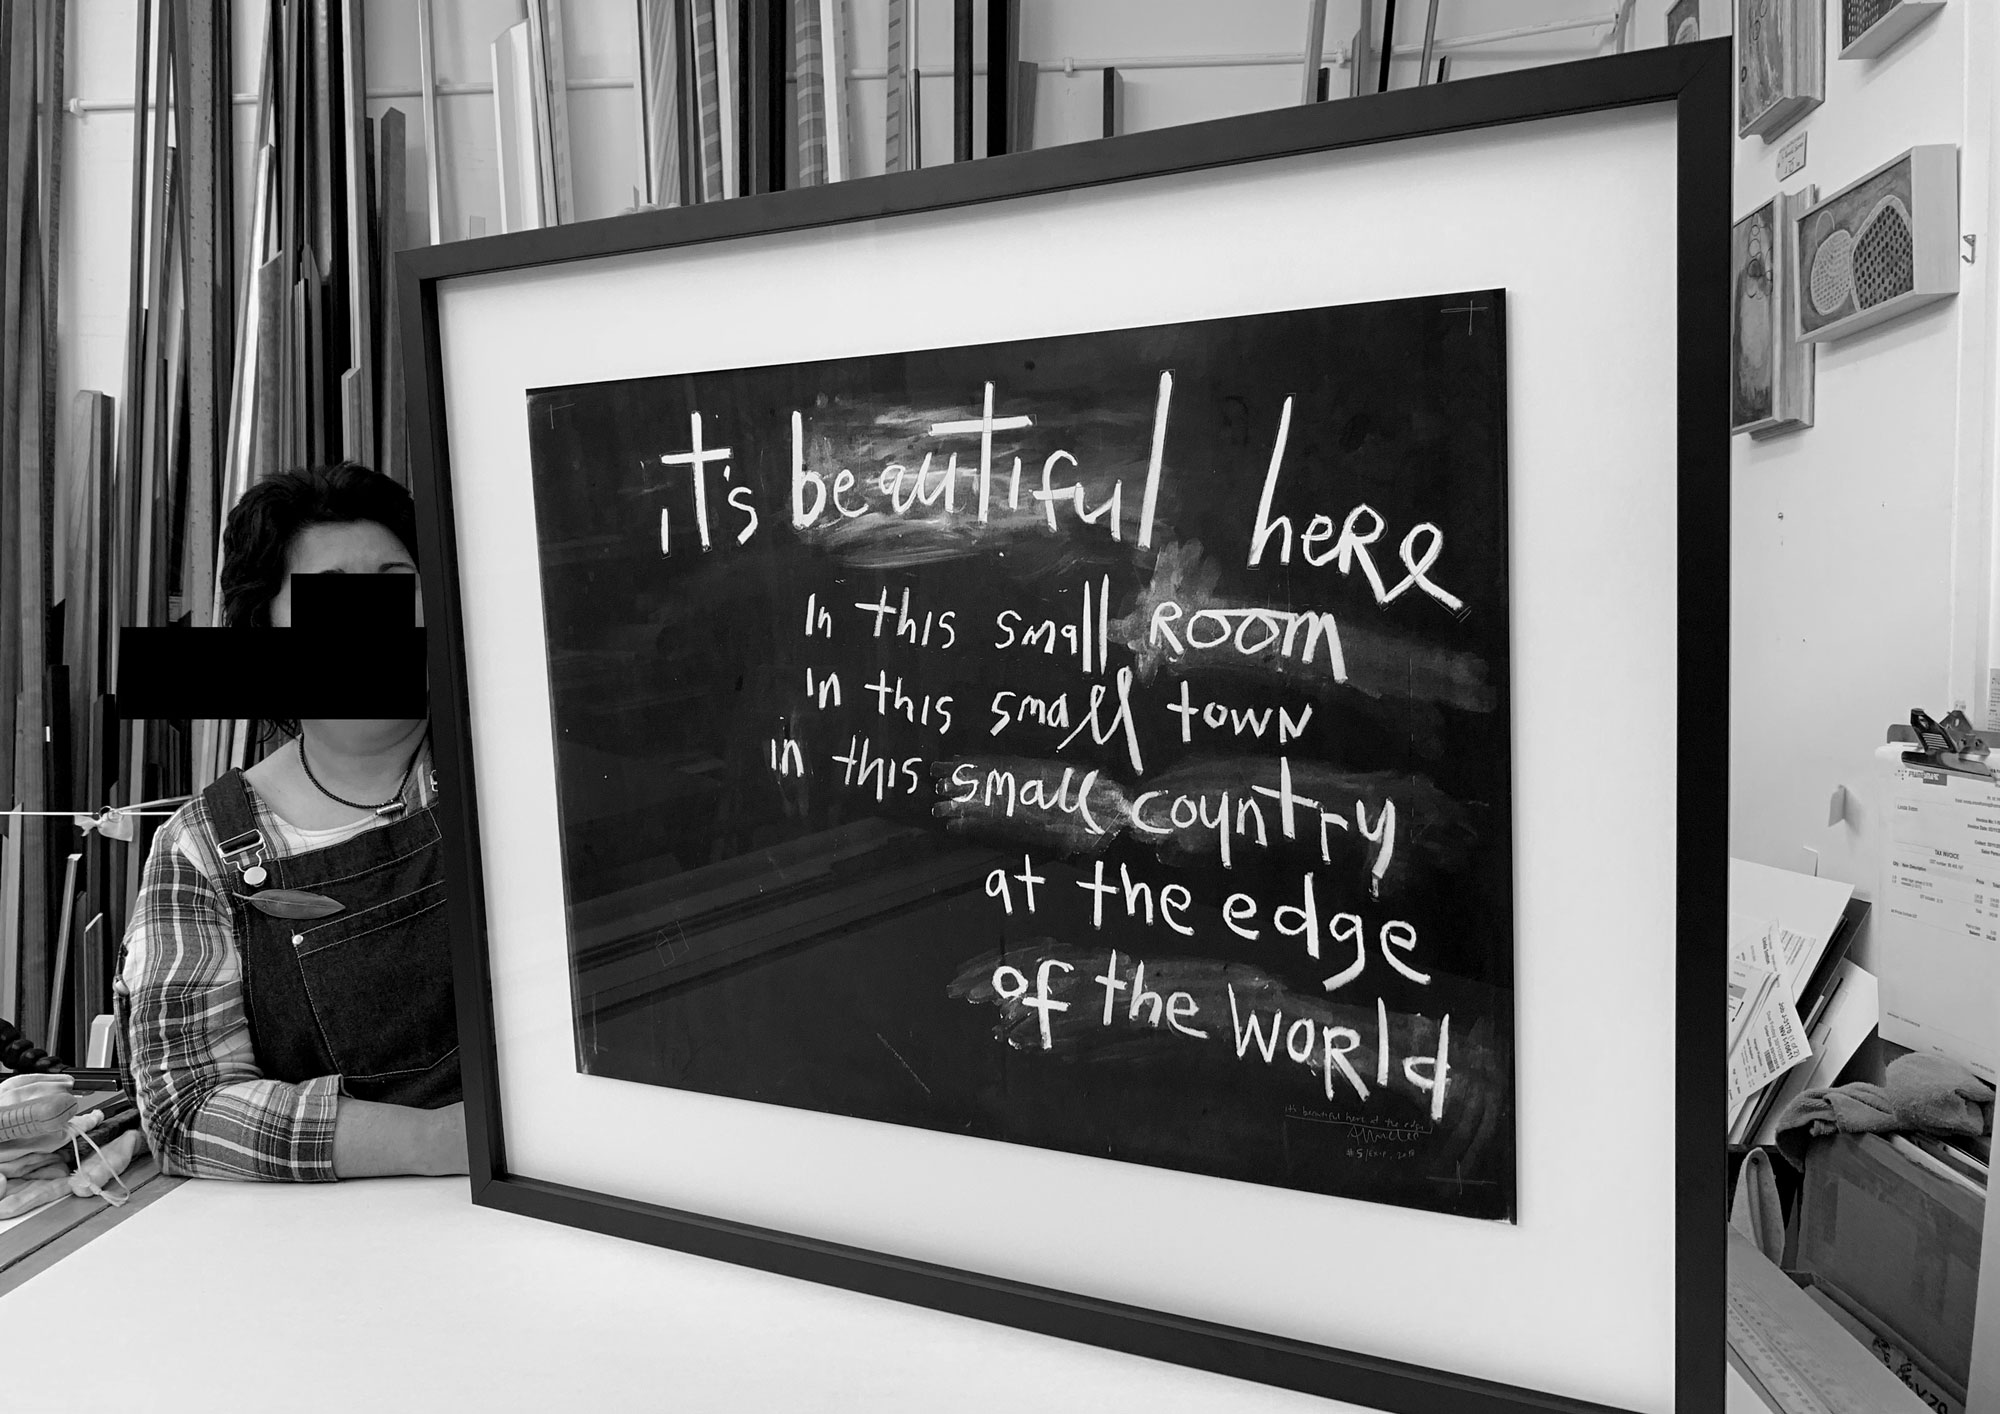 it's beautiful here
in this small room
in this small town
in this small country
at the edge
of the world
it's beautiful here at the edge
TAX INVOICE